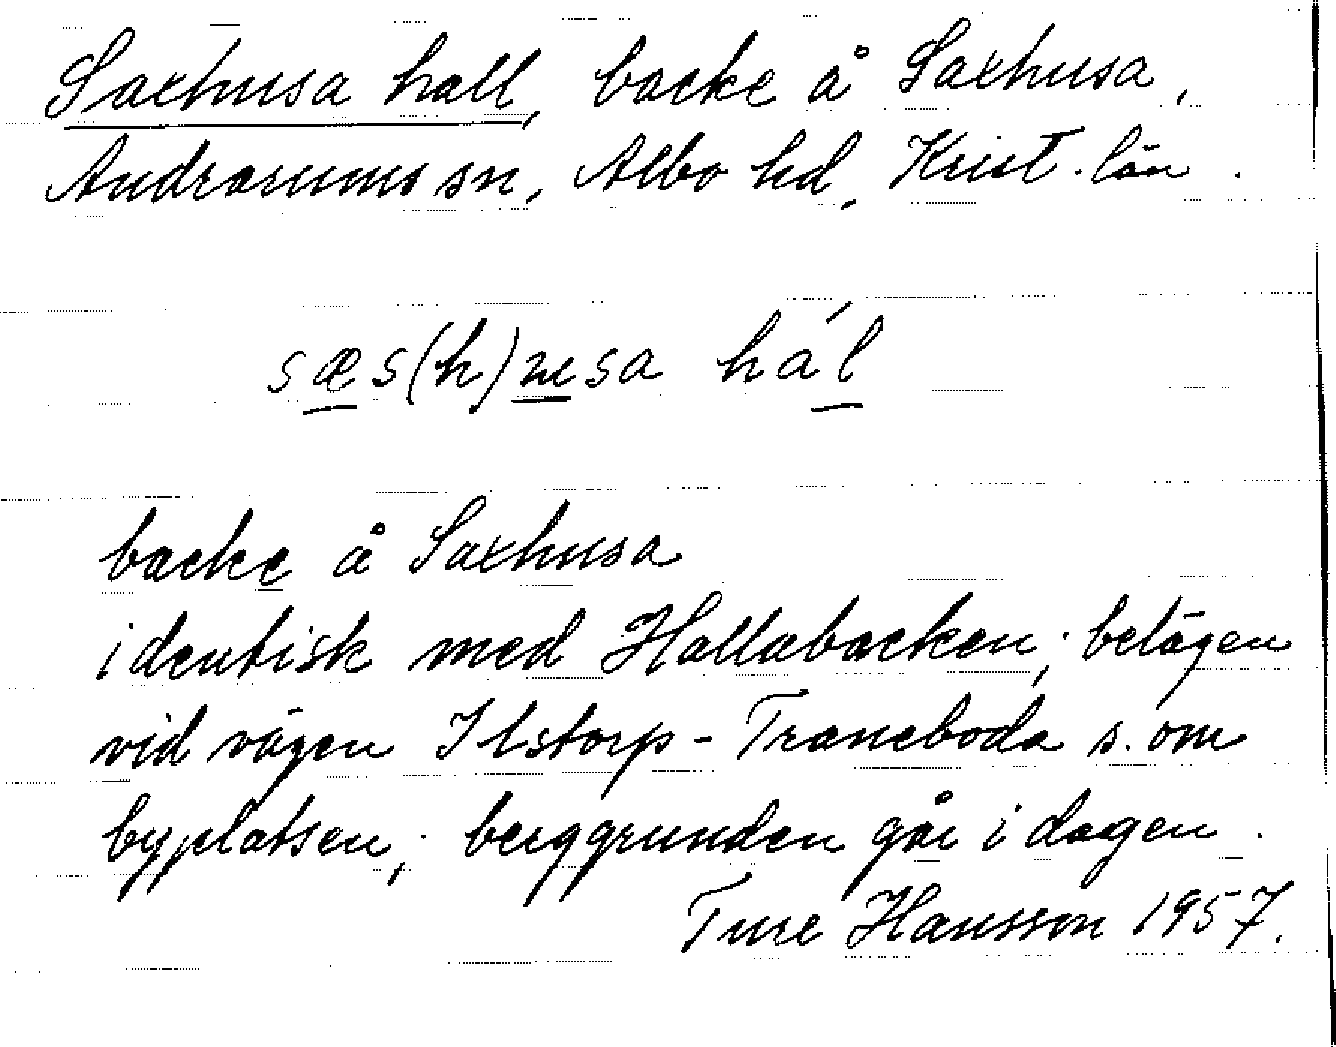 Saxhusa hall, backe å Saxhusa,
Andrarums sn, Albo hd, Krist. län.
sæs(h)usa hál
backe å Saxhusa
identisk med Hallabacken; belägen
vid vägen Ilstorp - Traneboda s. om
byplatsen; berggrunden går i dagen.
Ture Hansson 1957.